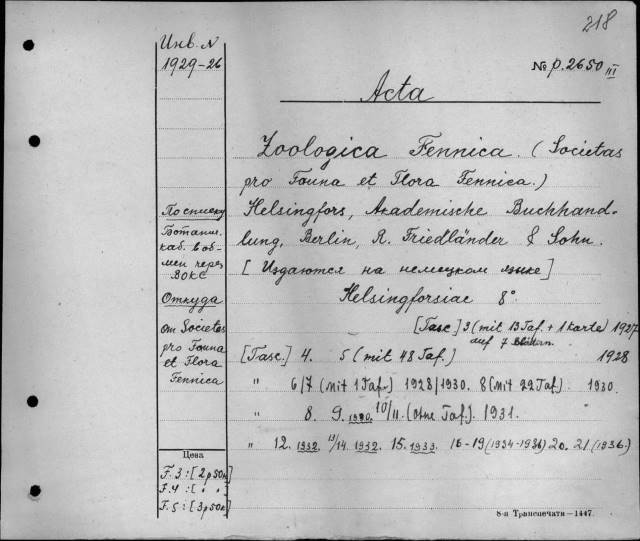 218
Инв. N
1929-26
№ p. 2650 III
Acta
Zoologica Fennica. (Societas
pro Fauna et Flora Fennica.)
По списку
Helsingfors, Akademische Buchhand-
Ботанич.
каб. в об-
мен через
ВОКС
lung, Berlin, R. Friedländer & Sohn.
[Издаются на немецком языке]
Откуда
Helsingforsiae 8°
от Societas
pro Fauna
et Flora
Fennica
[Fasc.] 3 (mit 13 Taf. + 1 Karte) 1927
auf 7
[Fasc.] 4. 5 (mit 48 Taf.) 1928
" 6/7 (mit 1 Taf.) 1928/1930. 8 (mit 22 Taf) 1930.
" 8. 9. 1930. 10/11. (ohne Taf.) 1931.
" 12. 1932. 13/14. 1932. 15. 1933. 16-19 (1934-1936) 20. 21 (1936.)
Цена
F. 3: [2 p 50 к]
F. 4: [ " " ]
F. 5: [3 p 50 к]
8-я Транспечати—1447.